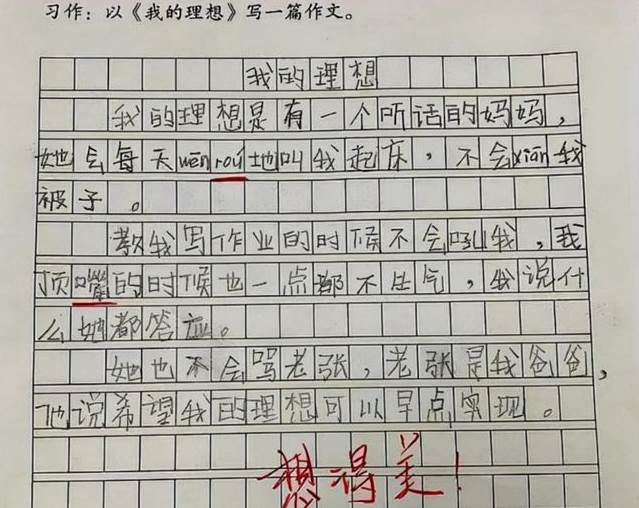 习作：以《我的理想》写一篇作文。
我的理想
我的理想是有一个听话的妈妈，
她会每天wēn roú地叫我起床，不会xiān我
被子。
教我写作业的时候不会吼我，我
顶嘴的时候也一点都不生气，我说什
么她都答应。
她也不会骂老张，老张是我爸爸，
他说希望我的理想可以早点实现。
想得美！